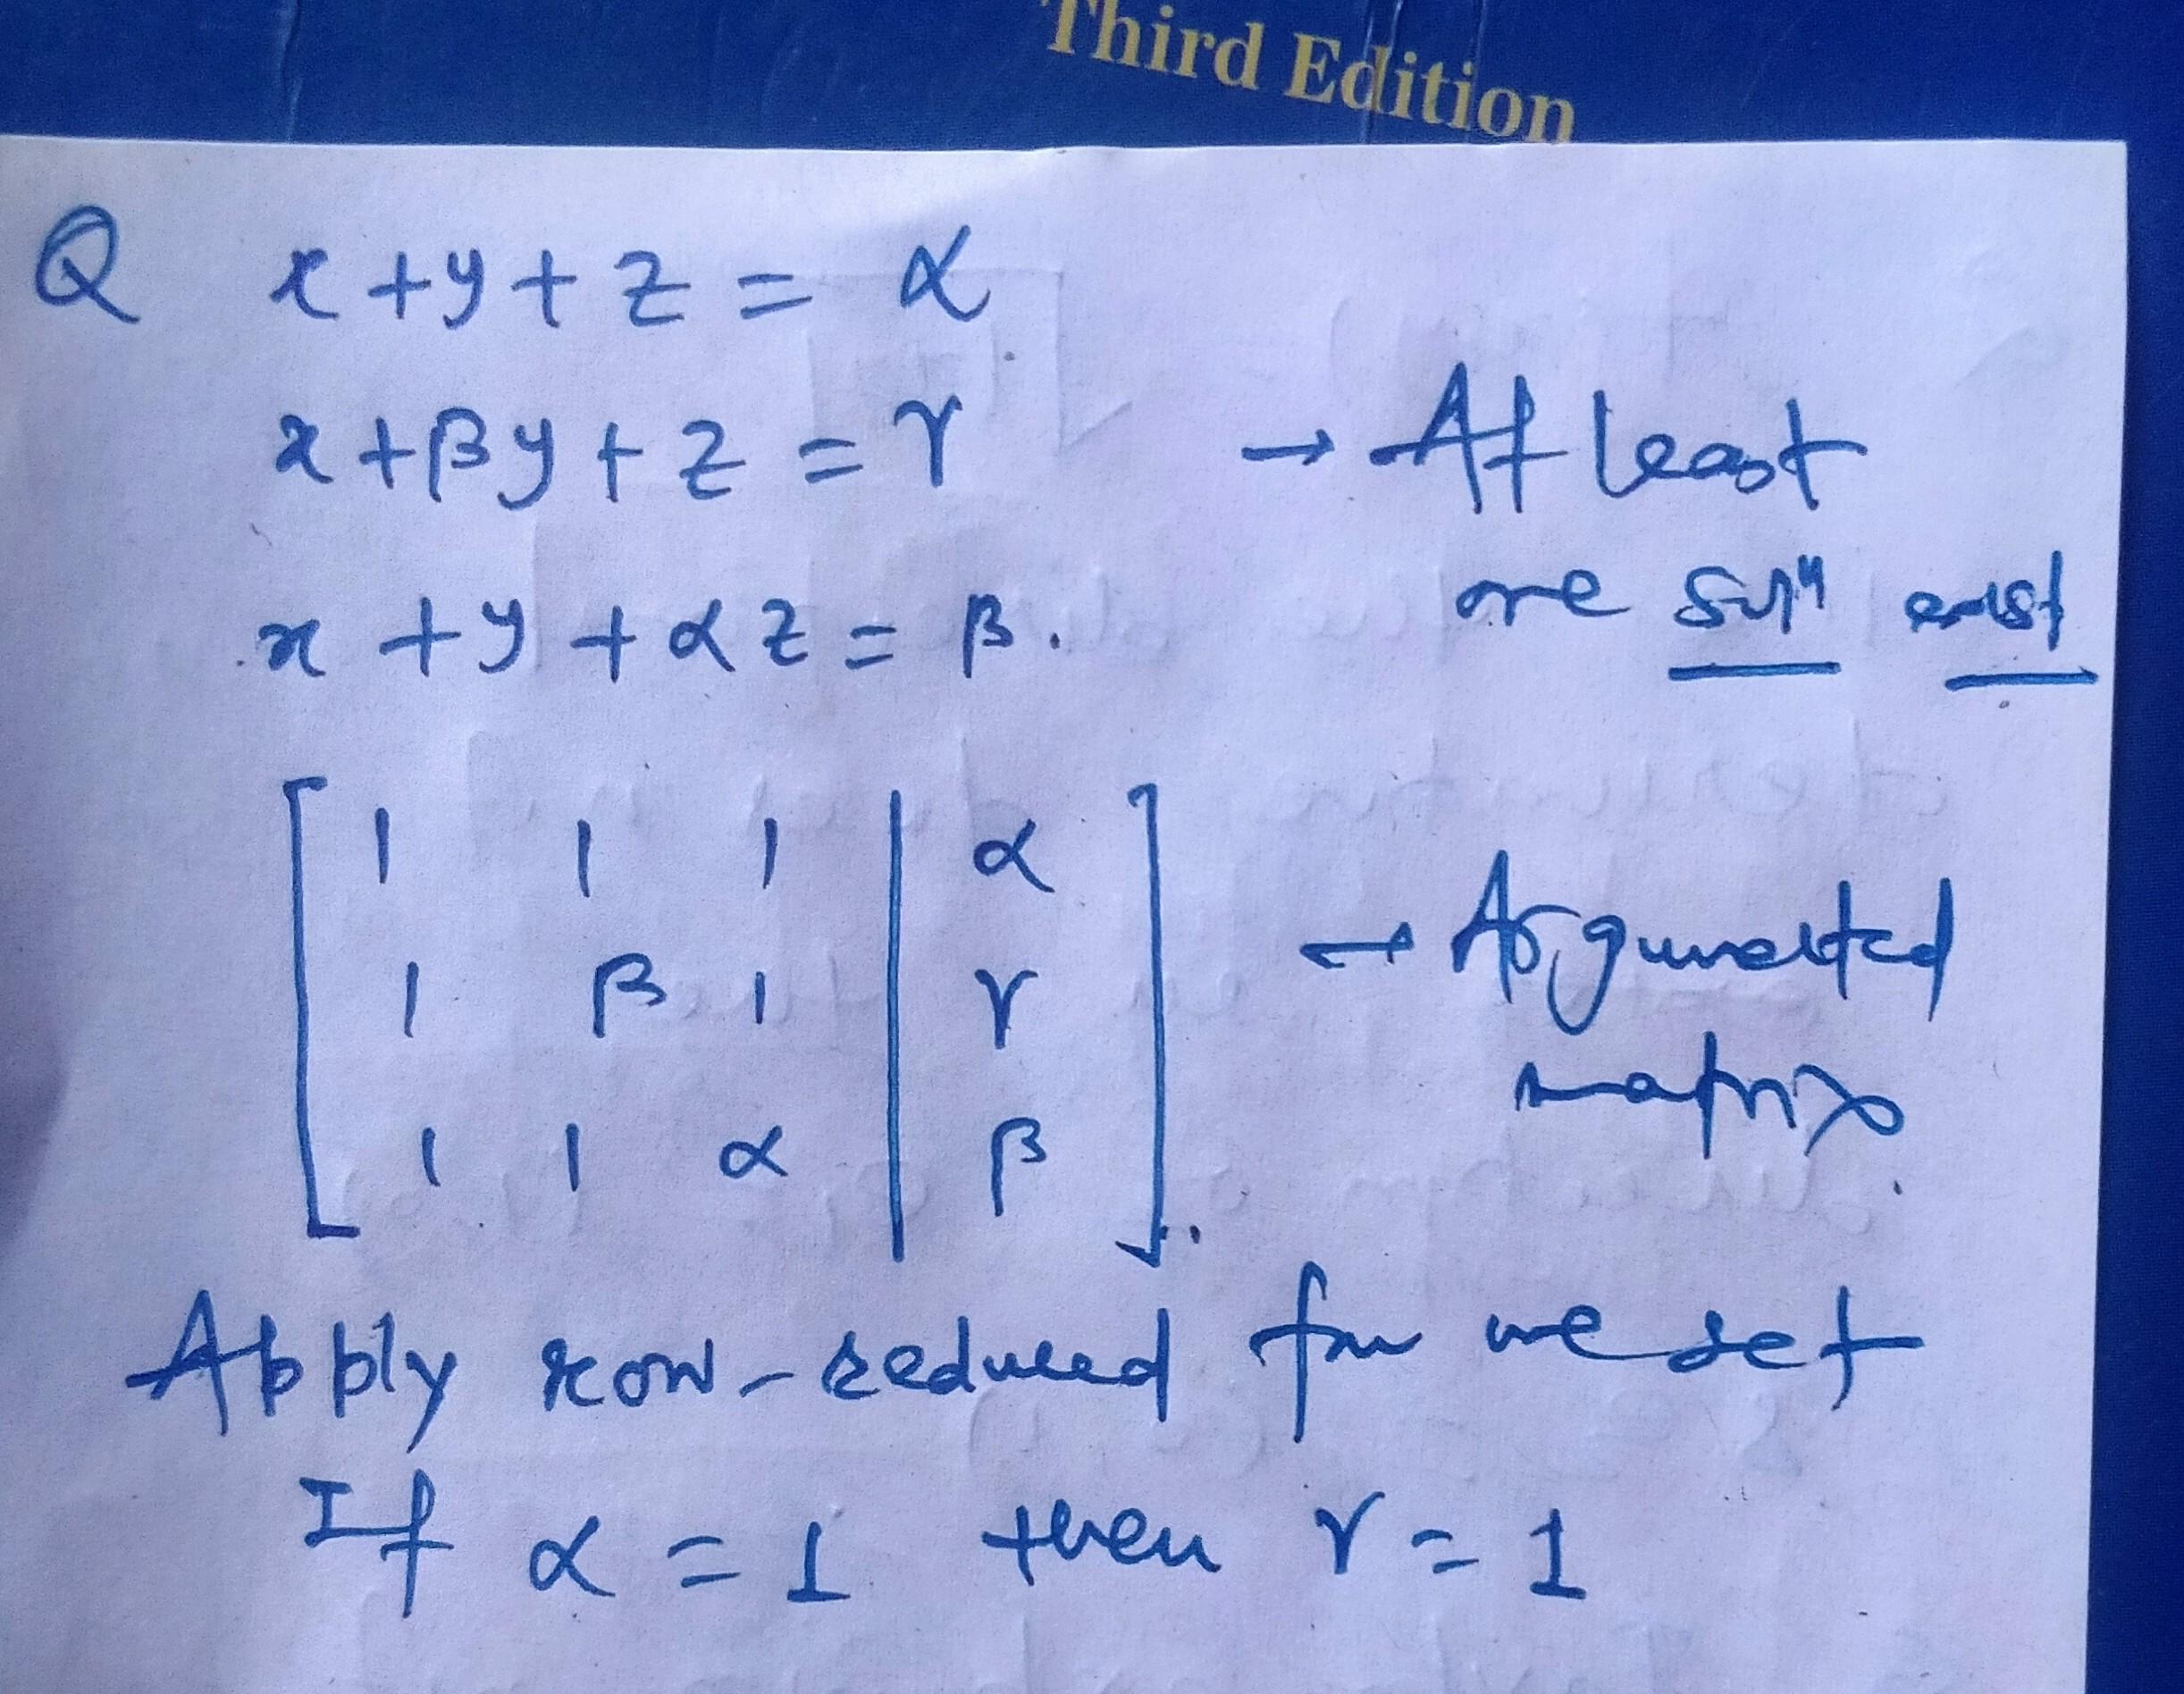 Third Edition
Q x + y + z = α
x + βy + z = γ → At least
one solⁿ exist
x + y + αz = β.
1 1 1 | α
1 β 1 | γ → Argumented
1 1 α | β matrix.
Apply row-reduced for we get
If α = 1 then γ = 1